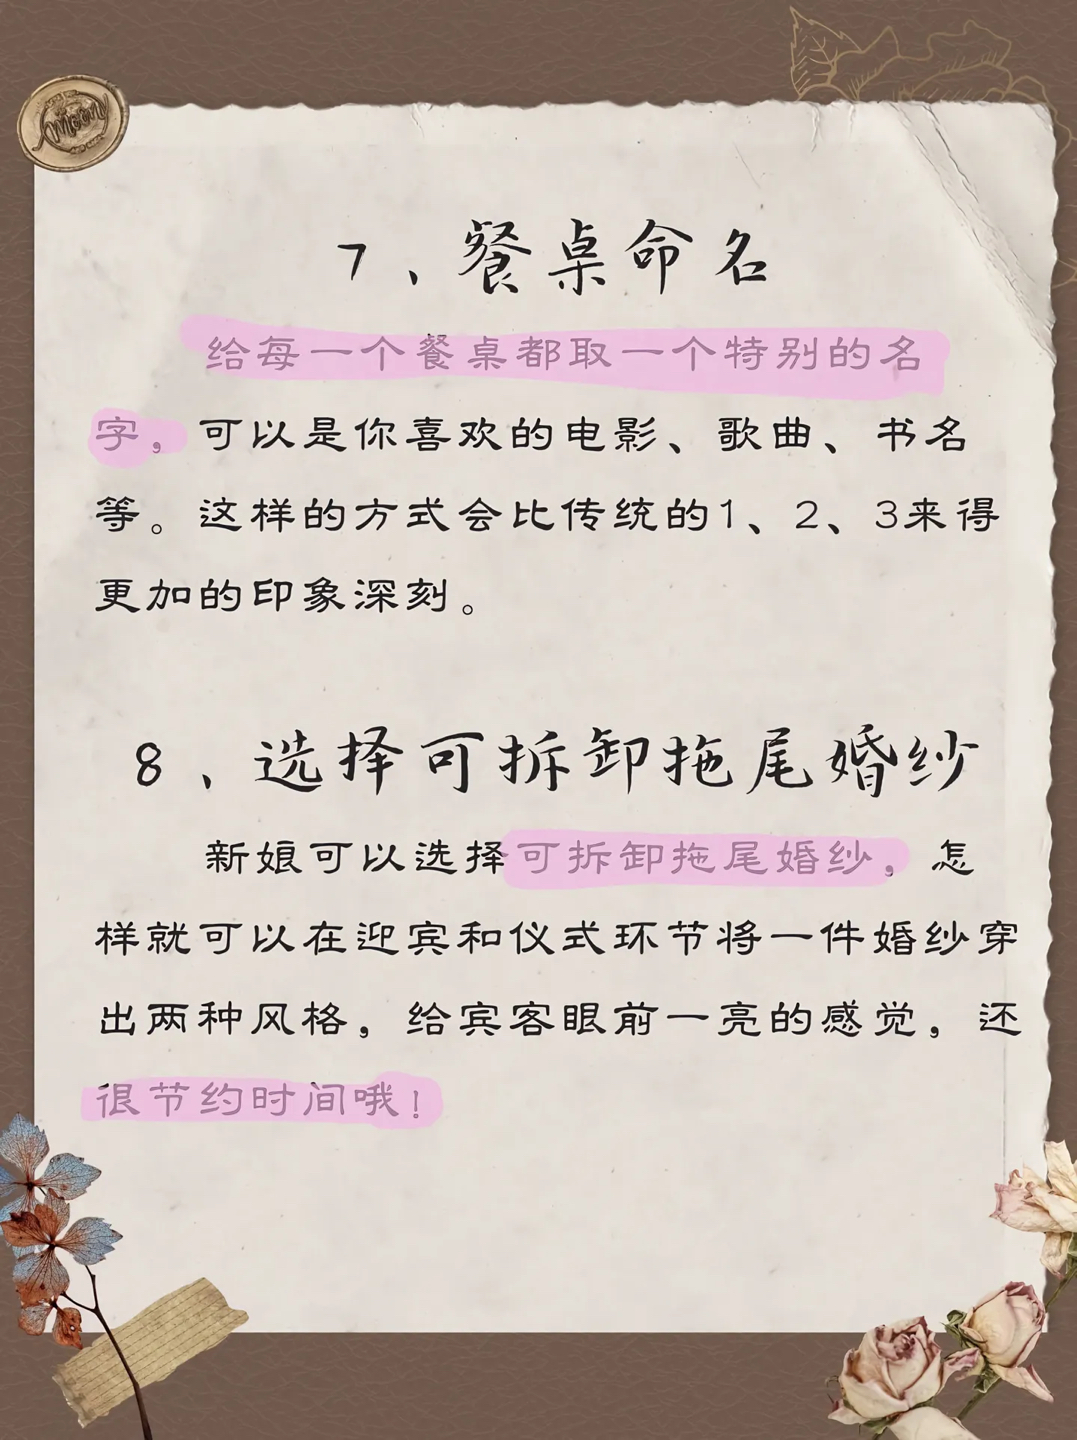 moony
7、餐桌命名
给每一个餐桌都取一个特别的名
字，可以是你喜欢的电影、歌曲、书名
等。这样的方式会比传统的1、2、3来得
更加的印象深刻。
8、选择可拆卸拖尾婚纱
新娘可以选择可拆卸拖尾婚纱，怎
样就可以在迎宾和仪式环节将一件婚纱穿
出两种风格，给宾客眼前一亮的感觉，还
很节约时间哦！